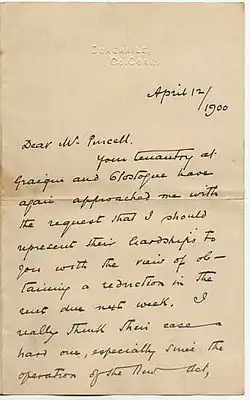 DONERAILE,
CO. CORK.
April 12/1900
Dear Mr. Purcell.
Your tenantry at
Graigue and Clostogue have
again approached me with
the request that I should
represent their hardships to
you with the view of ob-
taining a reduction in the
rent due next week. I
really think their case a
hard one, especially since the
operation of the New Act,